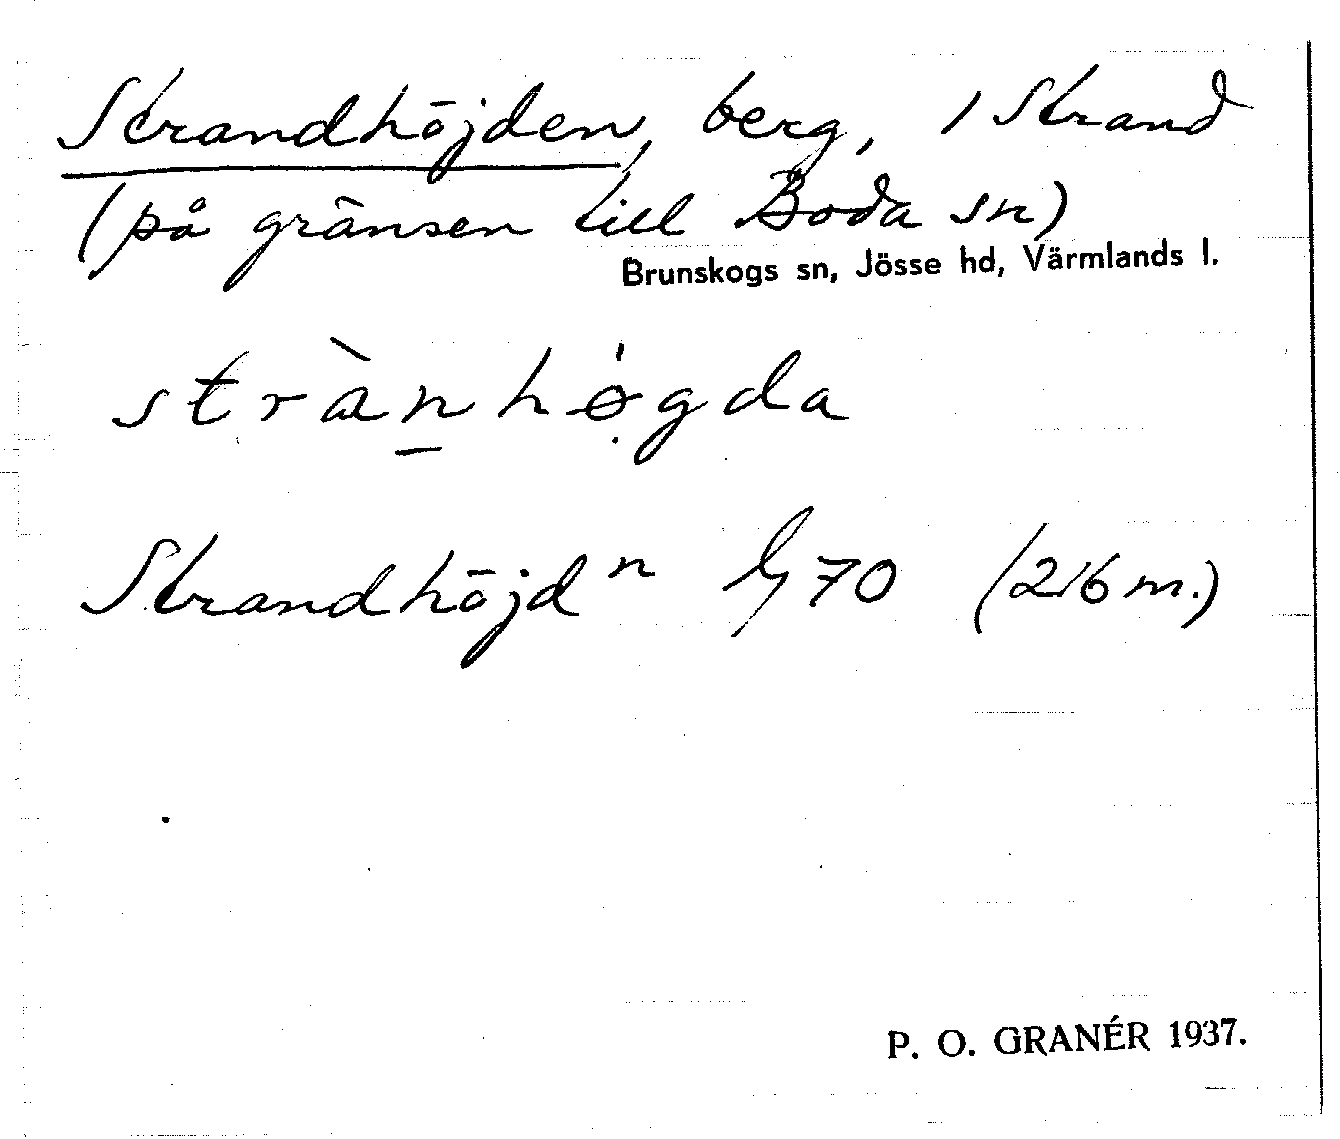 Strandhöjden, berg, 1 Strand
(på gränsen till Boda sn)
Brunskogs sn, Jösse hd, Värmlands l.
strànhǿ̣gda
Strandhöjdⁿ 70 (216 m.)
P. O. GRANÉR 1937.